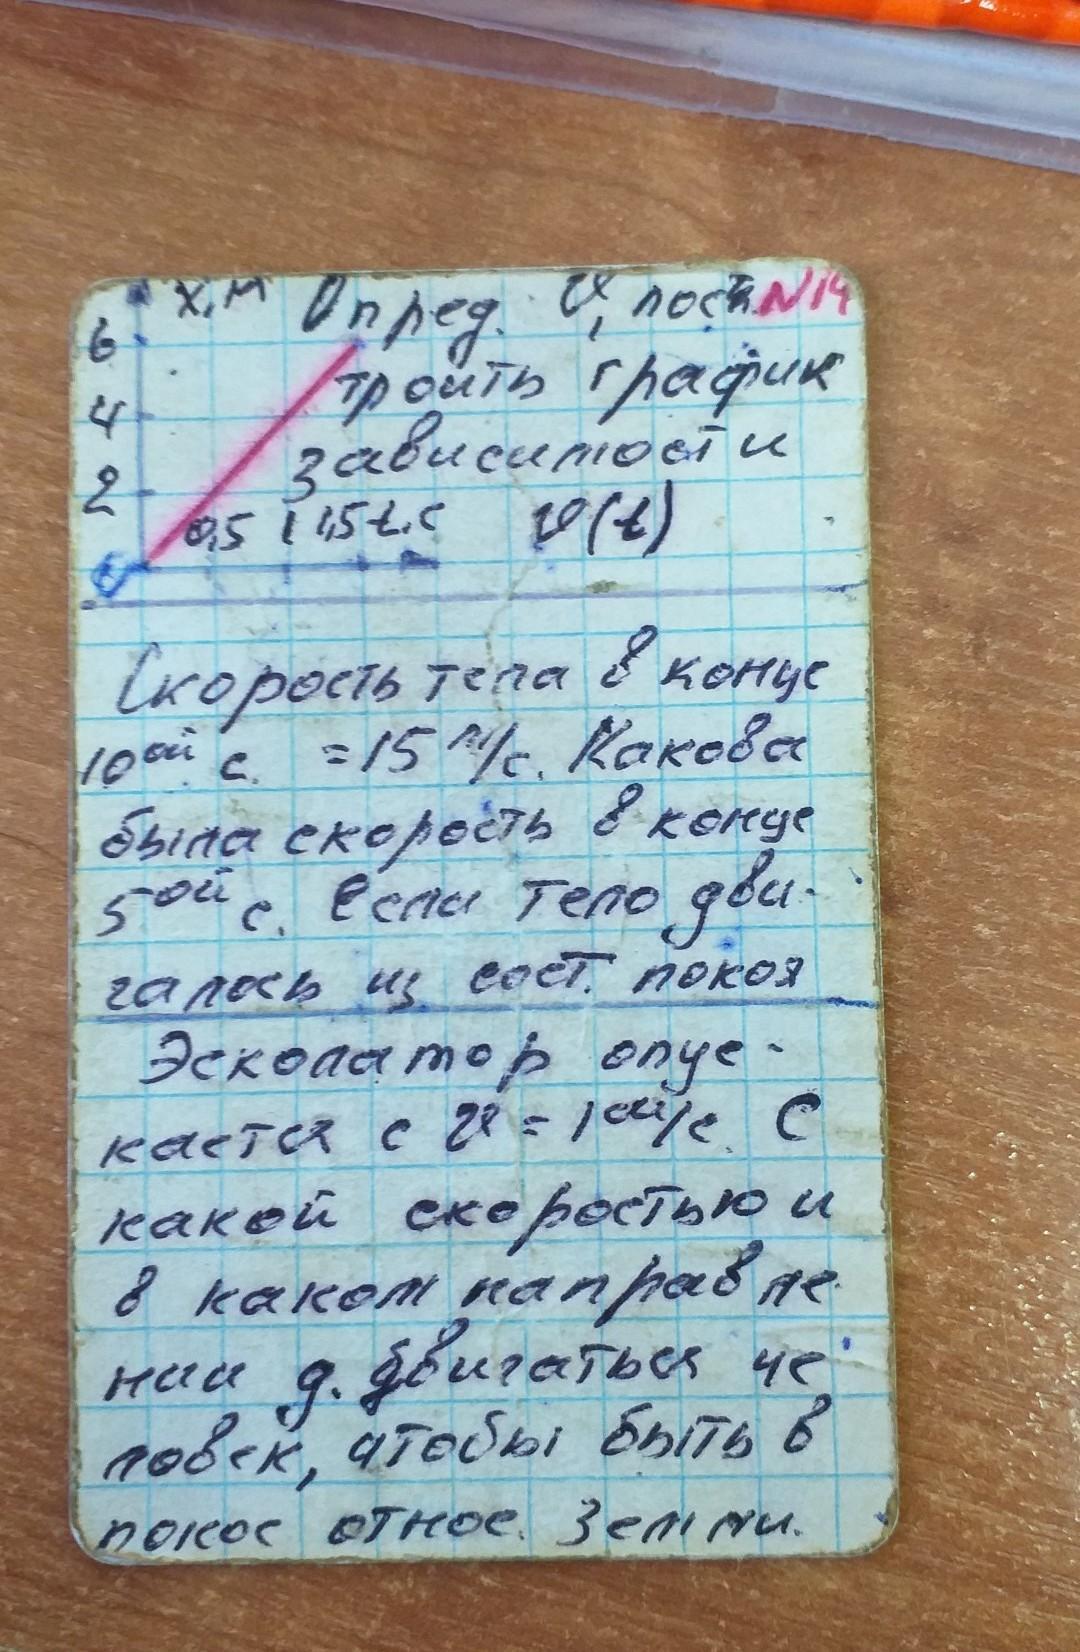 х,м Опред. υ, пост. N14
6
троить график
4
зависимости
2
0,5 1 1,5 t,c υ(t)
0
Скорость тела в конце
10ой с. =15 м/с. Какова
была скорость в конце
5ой с. Если тело дви-
галось из сост. покоя
Эсколатор опус-
кается с υ = 1 м/с. С
какой скоростью и
в каком направле
нии д. двигаться че
ловек, чтобы быть в
покое относ. Земли.